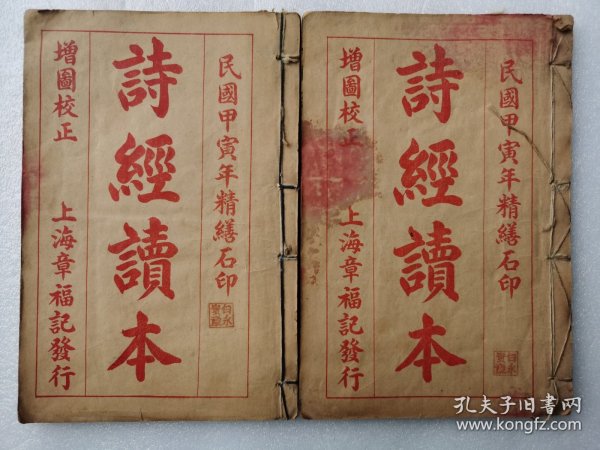 民國甲寅年精繕石印
詩經讀本
增圖校正 上海章福記發行
民國甲寅年精繕石印
詩經讀本
增圖校正 上海章福記發行
孔夫子旧书网
www.kongfz.com